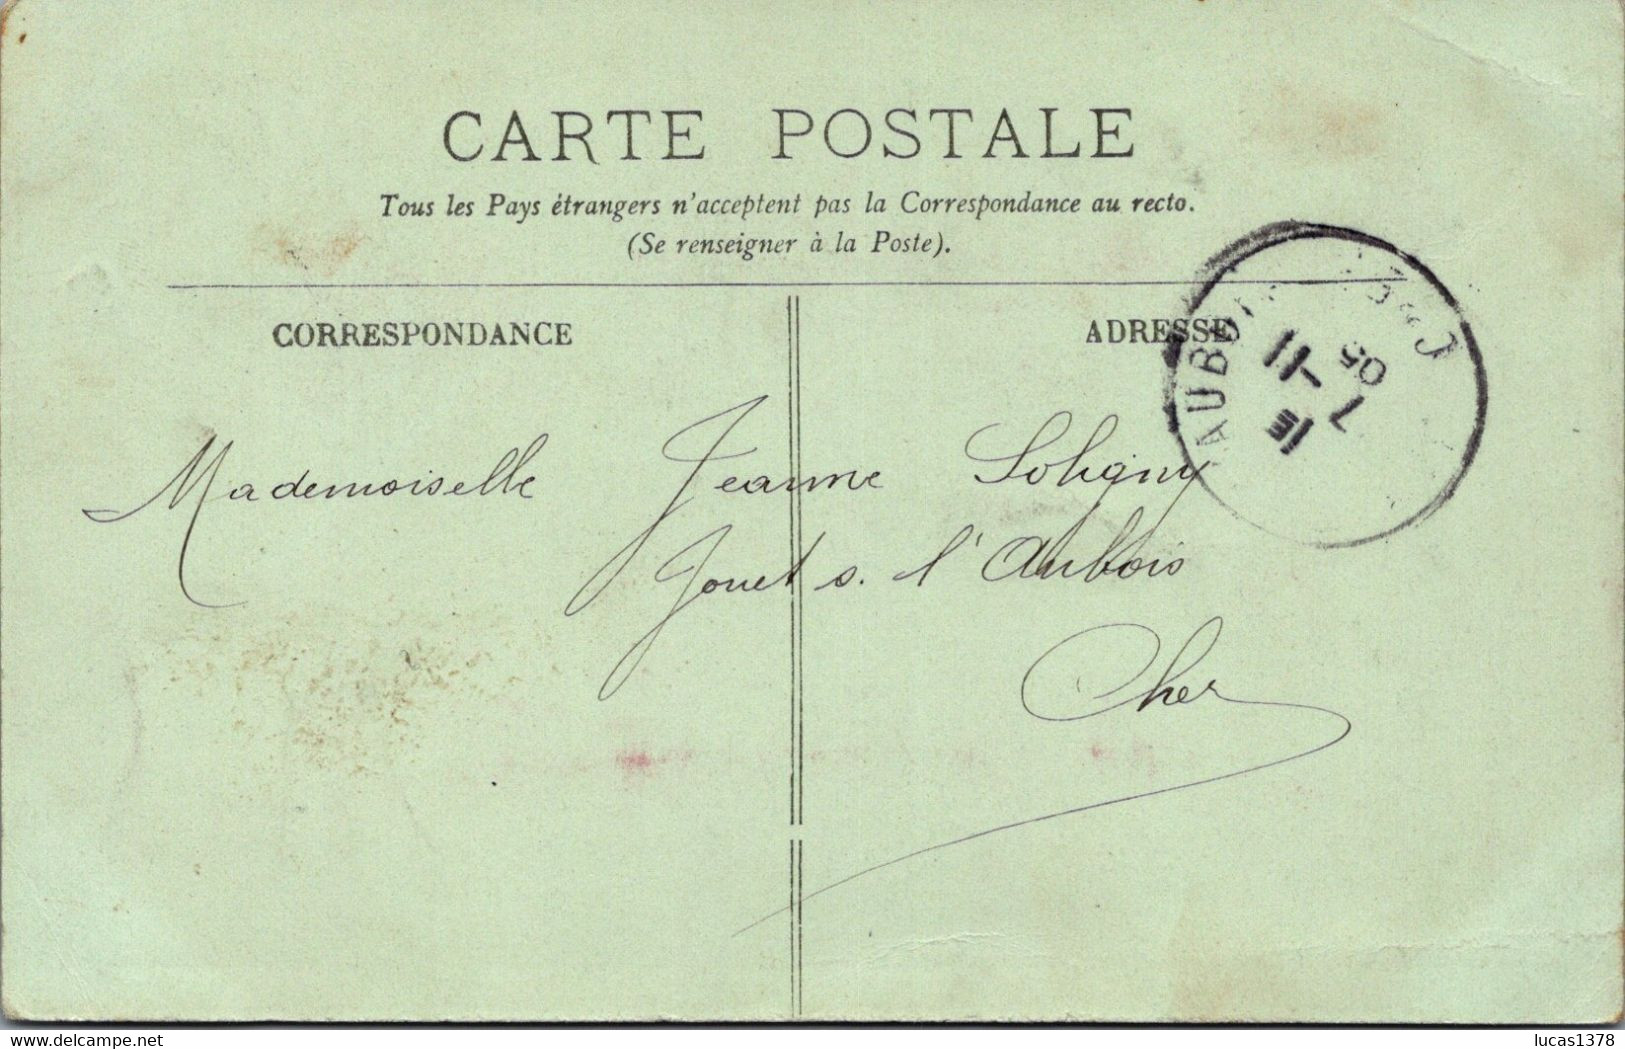 CARTE POSTALE
Tous les Pays étrangers n'acceptent pas la Correspondance au recto.
(Se renseigner à la Poste).
CORRESPONDANCE
ADRESSE
Mademoiselle Jeanne Soligny
Jouet s. l'Aubois
Cher
11
7 -11
05
delcampe.net
lucas1378